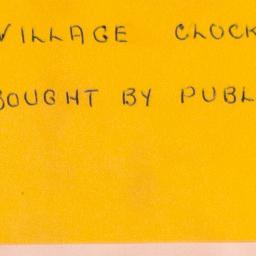 VILLAGE CLOCK
BOUGHT BY PUBL